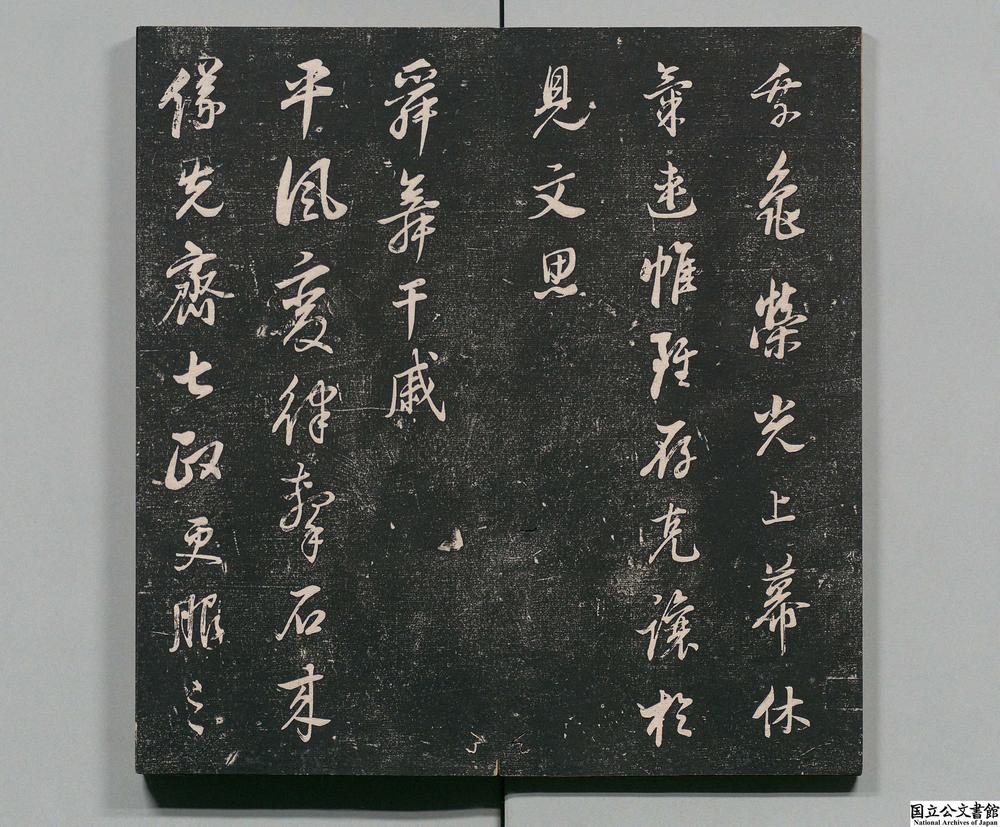 龜榮光上幕休
氣連帷雖存克讓於
見文思
舜舞干戚
平風變律擊石来
儀先齊七政更服三
国立公文書館
National Archives of Japan